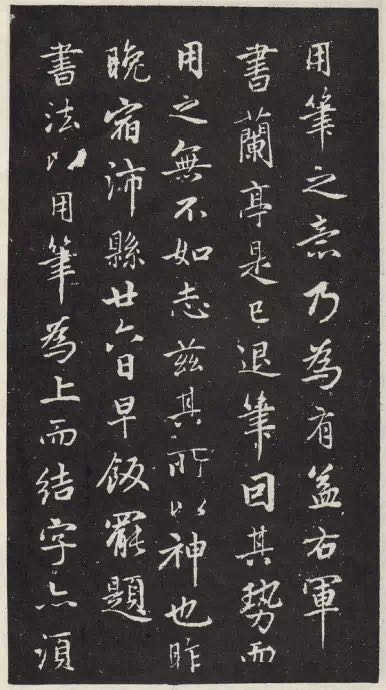 用筆之意乃為有益右軍
書蘭亭是已退筆因其勢而
用之無不如志茲其所以神也昨
晚宿沛縣廿六日早飯罷題
書法以用筆為上而結字亦須